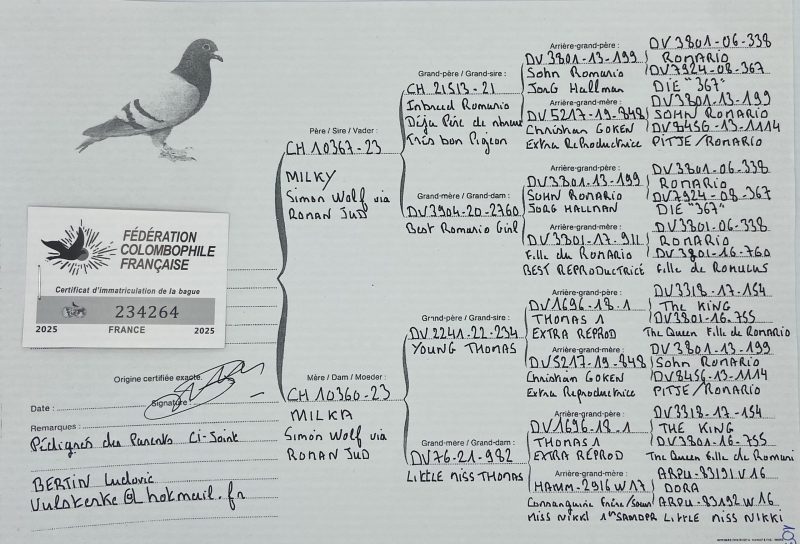 FÉDÉRATION
COLOMBOPHILE
FRANÇAISE
Certificat d'immatriculation de la bague
234264
2025 FRANCE 2025
Origine certifiée exacte.
Signature :
Date :
Remarques :
Pédigrés des Parents Ci-Joint
BERTIN Ludovic
Père / Sire / Vader :
CH 10367-23
MILKY
Simon Wolf via
RONAN JUD
Mère / Dam / Moeder :
CH 10360-23
MILKA
Simon Wolf via
RONAN JUD
Grand-père / Grand-sire :
CH 21513-21
Inbreed Romario
Déjà Père de
Très bon Pigeon
Grand-mère / Grand-dam :
DV3904-20-2760
Best Romario Girl
Grand-père / Grand-sire :
DV 2241-22-234
YOUNG THOMAS
Grand-mère / Grand-dam :
DV76-21-982
LITTLE MISS THOMAS
Arrière-grand-père :
DV 3801-13-199
Sohn Romario
Jorg Hallman
Arrière-grand-mère :
DV 5217-19-848
Christian GOKEN
Extra Reproductrice
Arrière-grand-père :
DV3801-13-199
SOHN ROMARIO
JORG HALLMAN
Arrière-grand-mère :
DV 3801-17-911
Fille du ROMARIO
BEST REPRODUCTRICE
Arrière-grand-père :
DV1696-18-1
THOMAS 1
EXTRA REPROD
Arrière-grand-mère :
DV5217-19-848
Christian GOKEN
Extra Reproductrice
Arrière-grand-père :
DV1696-18-1
THOMAS 1
EXTRA REPROD
Arrière-grand-mère :
HAMM-2916 W17
Consanguine Frère/Soeur
MISS NIKKI
DV 3801-06-338
ROMARIO
DV7924-08-367
DIE "367"
DV3801-13-199
SOHN ROMARIO
DV8456-13-1114
PITJE/ROMARIO
DV3801-06-338
ROMARIO
DV7924-08-367
DIE "367"
DV3801-06-338
ROMARIO
DV3801-16-760
Fille de ROMULUS
DV3318-17-154
THE KING
DV3801-16-755
The Queen Fille de Romario
DV3801-13-199
Sohn ROMARIO
DV8456-13-1114
PITJE/ROMARIO
DV3318-17-154
THE KING
DV3801-16-755
The Queen Fille de Romari
ARPU-83191 V 16
DORA
ARPU-83192 W 16
LITTLE MISS NIKKI